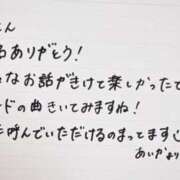 くん
るありがとう!
なお話がきけて楽しかったで
ドの曲きいてみますね!
た呼んでいただけるのまってます
あいかより